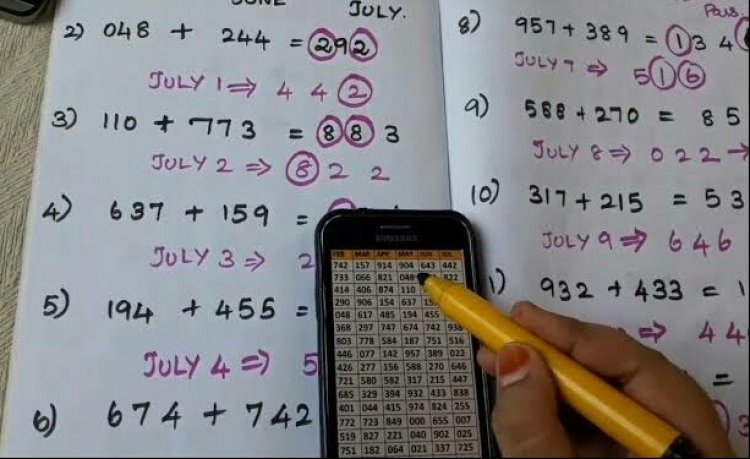 JUNE JULY.
2) 048 + 244 = 292
JULY 1 ⇒ 4 4 2
3) 110 + 773 = 883
JULY 2 ⇒ 8 2 2
4) 637 + 159 =
JULY 3 ⇒ 2
5) 194 + 455 =
JULY 4 ⇒ 5
6) 674 + 742
SAMSUNG
FEB MAR APR MAY JUN JUL
742 157 914 904 643 442
733 066 821 048 822
414 406 874 110
290 906 154 637
048 617 485 194 455
368 297 747 674 742 936
803 778 584 187 751 516
446 077 142 957 389 022
426 277 156 588 270 646
721 580 582 317 215 447
685 329 394 932 433 838
401 044 415 974 824 255
772 723 849 000 655 007
519 827 221 040 902 025
751 182 064 021 337 725
Pass
8) 957 + 389 = 1 3 4
JULY 7 ⇒ 5 1 6
9) 588 + 270 = 8 5
JULY 8 ⇒ 0 2 2 →
10) 317 + 215 = 53
JULY 9 ⇒ 6 4 6
1) 932 + 433 = 1
⇒ 4 4
=
3